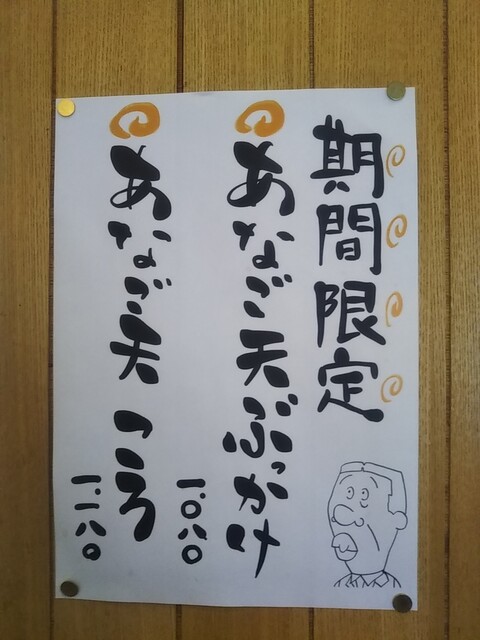 期間限定
あなご天ぶっかけ
一.〇八〇
あなご天 ころ
一.一八〇